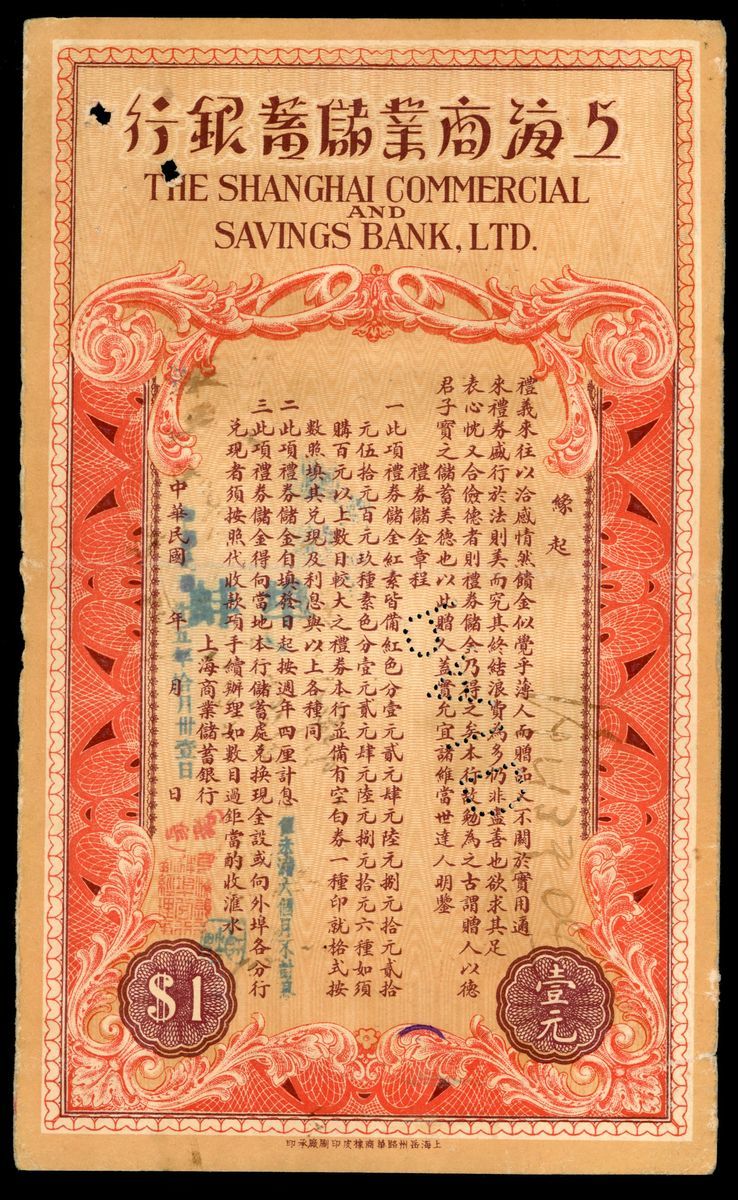 上海商業儲蓄銀行
THE SHANGHAI COMMERCIAL
AND
SAVINGS BANK, LTD.
緣起
禮義來往以洽感情然饋金似覺乎薄人而贈品又不關於實用邇
來禮券盛行於法則美而究其終結浪費為多仍非盡善也欲求其足
表心忱又合儉德者則禮券儲金乃得之矣本行故勉為之古謂贈人以德
君子寶之儲蓄美德也以此贈人蓋實允宜諸維當世達人明鑒
禮券儲金章程
一 此項禮券儲金紅素皆備紅色分壹元貳元肆元陸元捌元拾元貳拾
元伍拾元百元玖種素色分壹元貳元肆元陸元捌元拾元六種如須
購百元以上數目較大之禮券本行並備有空白券一種印就格式按
數照填其兌現及利息與以上各種同
二 此項禮券儲金自填發日起按週年四厘計息
三 此項禮券儲金得向當地本行儲蓄處兌換現金設或向外埠各分行
兌現者須按照代收款項手續辦理如數目過鉅當酌收滙水
上海商業儲蓄銀行
中華民國 年 月 日
五年拾月卅壹日
$1
壹元
上海岳州路華商橡皮印刷廠承印